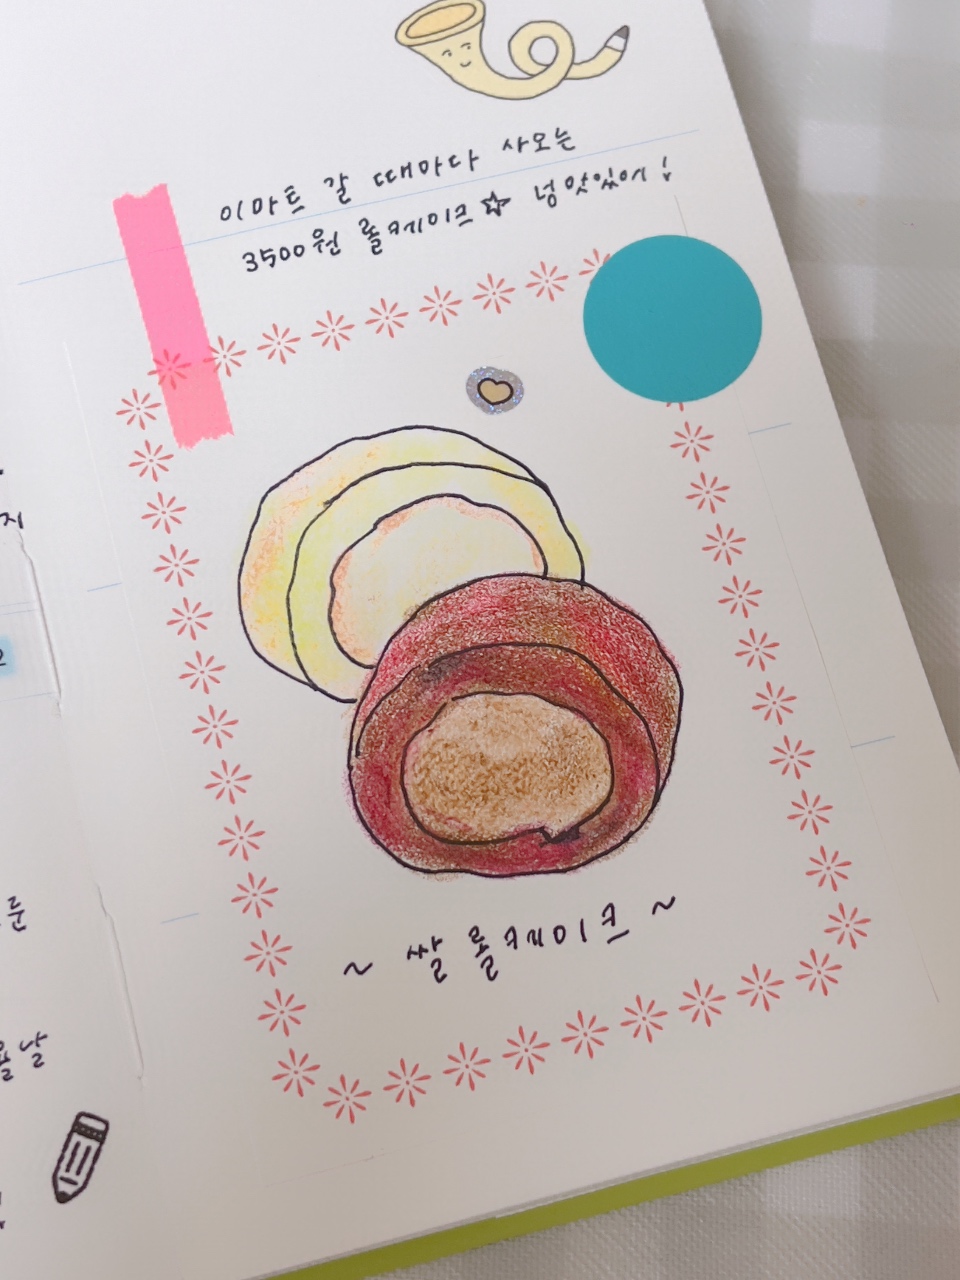 이마트 갈 때마다 사오는
3500원 롤케이크☆ 넘 맛있어!
~ 쌀 롤케이크 ~
지
른
날